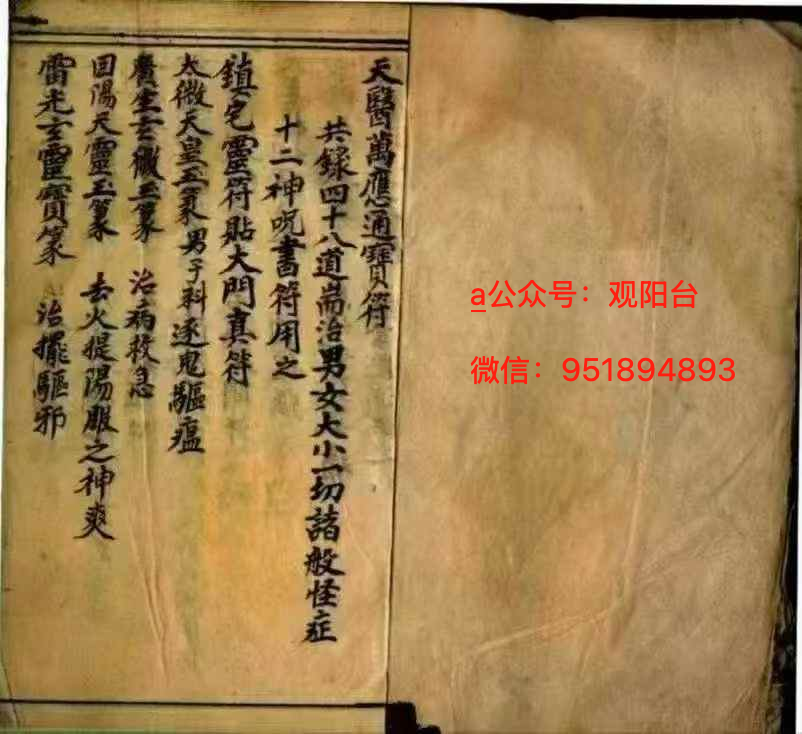 天醫萬應通寳符
共錄四十八道耑治男女大小一切諸般怪症
十二神呪書符用之
鎮宅靈符貼大門真符
太微天皇玉篆 男子科逐鬼驅瘟
養生玄微玉篆 治病救急
回陽天靈玉篆 去火提陽服之神爽
雷光玄靈寳篆 治擺驅邪
a公众号：观阳台
微信：951894893